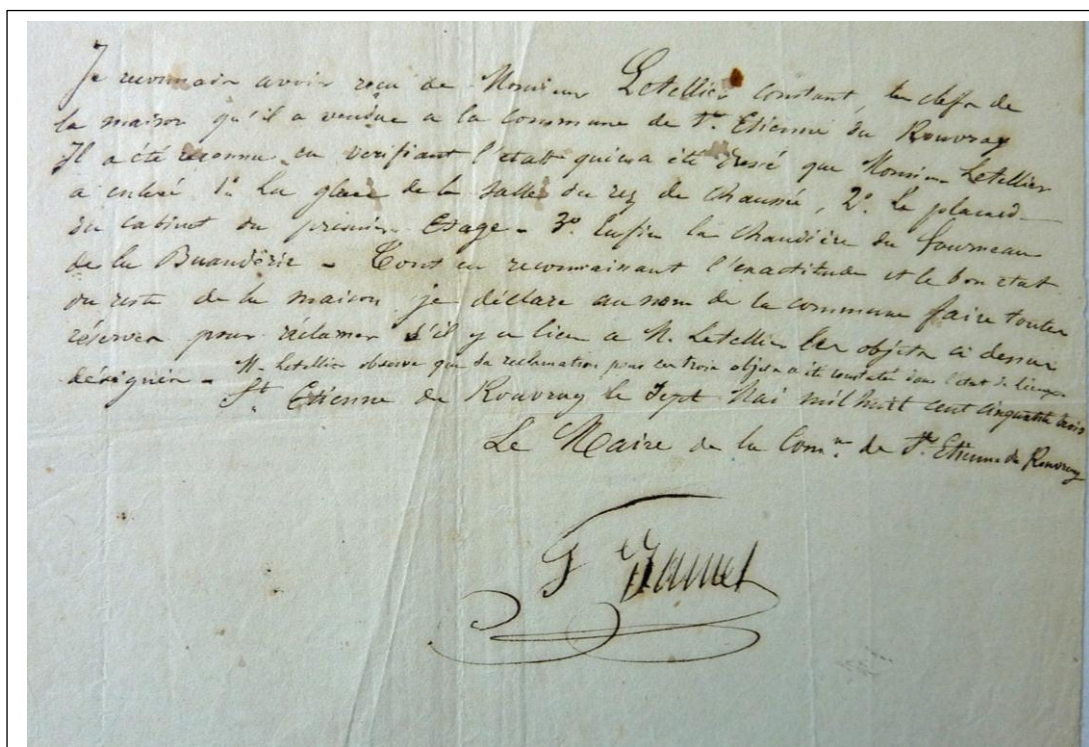 Je reconnais avoir reçu de Monsieur Letellier Constant, les clefs de
la maison qu'il a vendue a la commune de St. Etienne du Rouvray
Il a été reconnu en verifiant l'etat qui en a été dressé que Monsieur Letellier
a enlevé 1º. La glace de la Salle du rez de chaussée, 2º. le placard
du cabinet du premier Etage - 3º. Enfin la chaudière du fourneau
de la Buanderie - Tout en reconnaissant l'exactitude et le bon etat
du reste de la maison je déclare au nom de la commune faire toutes
réserves pour réclamer s'il y a lieu a M. Letellier les objets ci dessus
désignés - M. Letellier observe que sa reclamation pour ces trois objets a été constatée dans l'état de lieux
St. Etienne du Rouvray le Sept Mai mil huit cent cinquante trois
Le Maire de la Comne. de St. Etienne du Rouvray